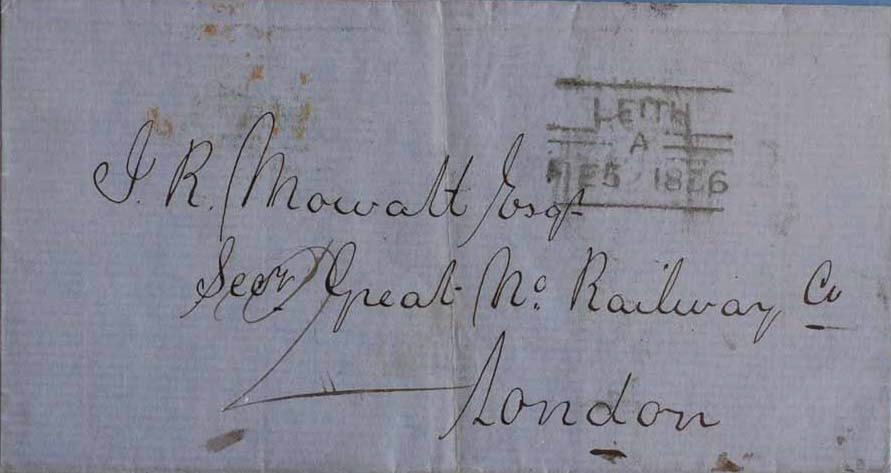 LEITH
A
FE5 1856
J. R. Mowatt Esqr
Secy Great No. Railway Co
London